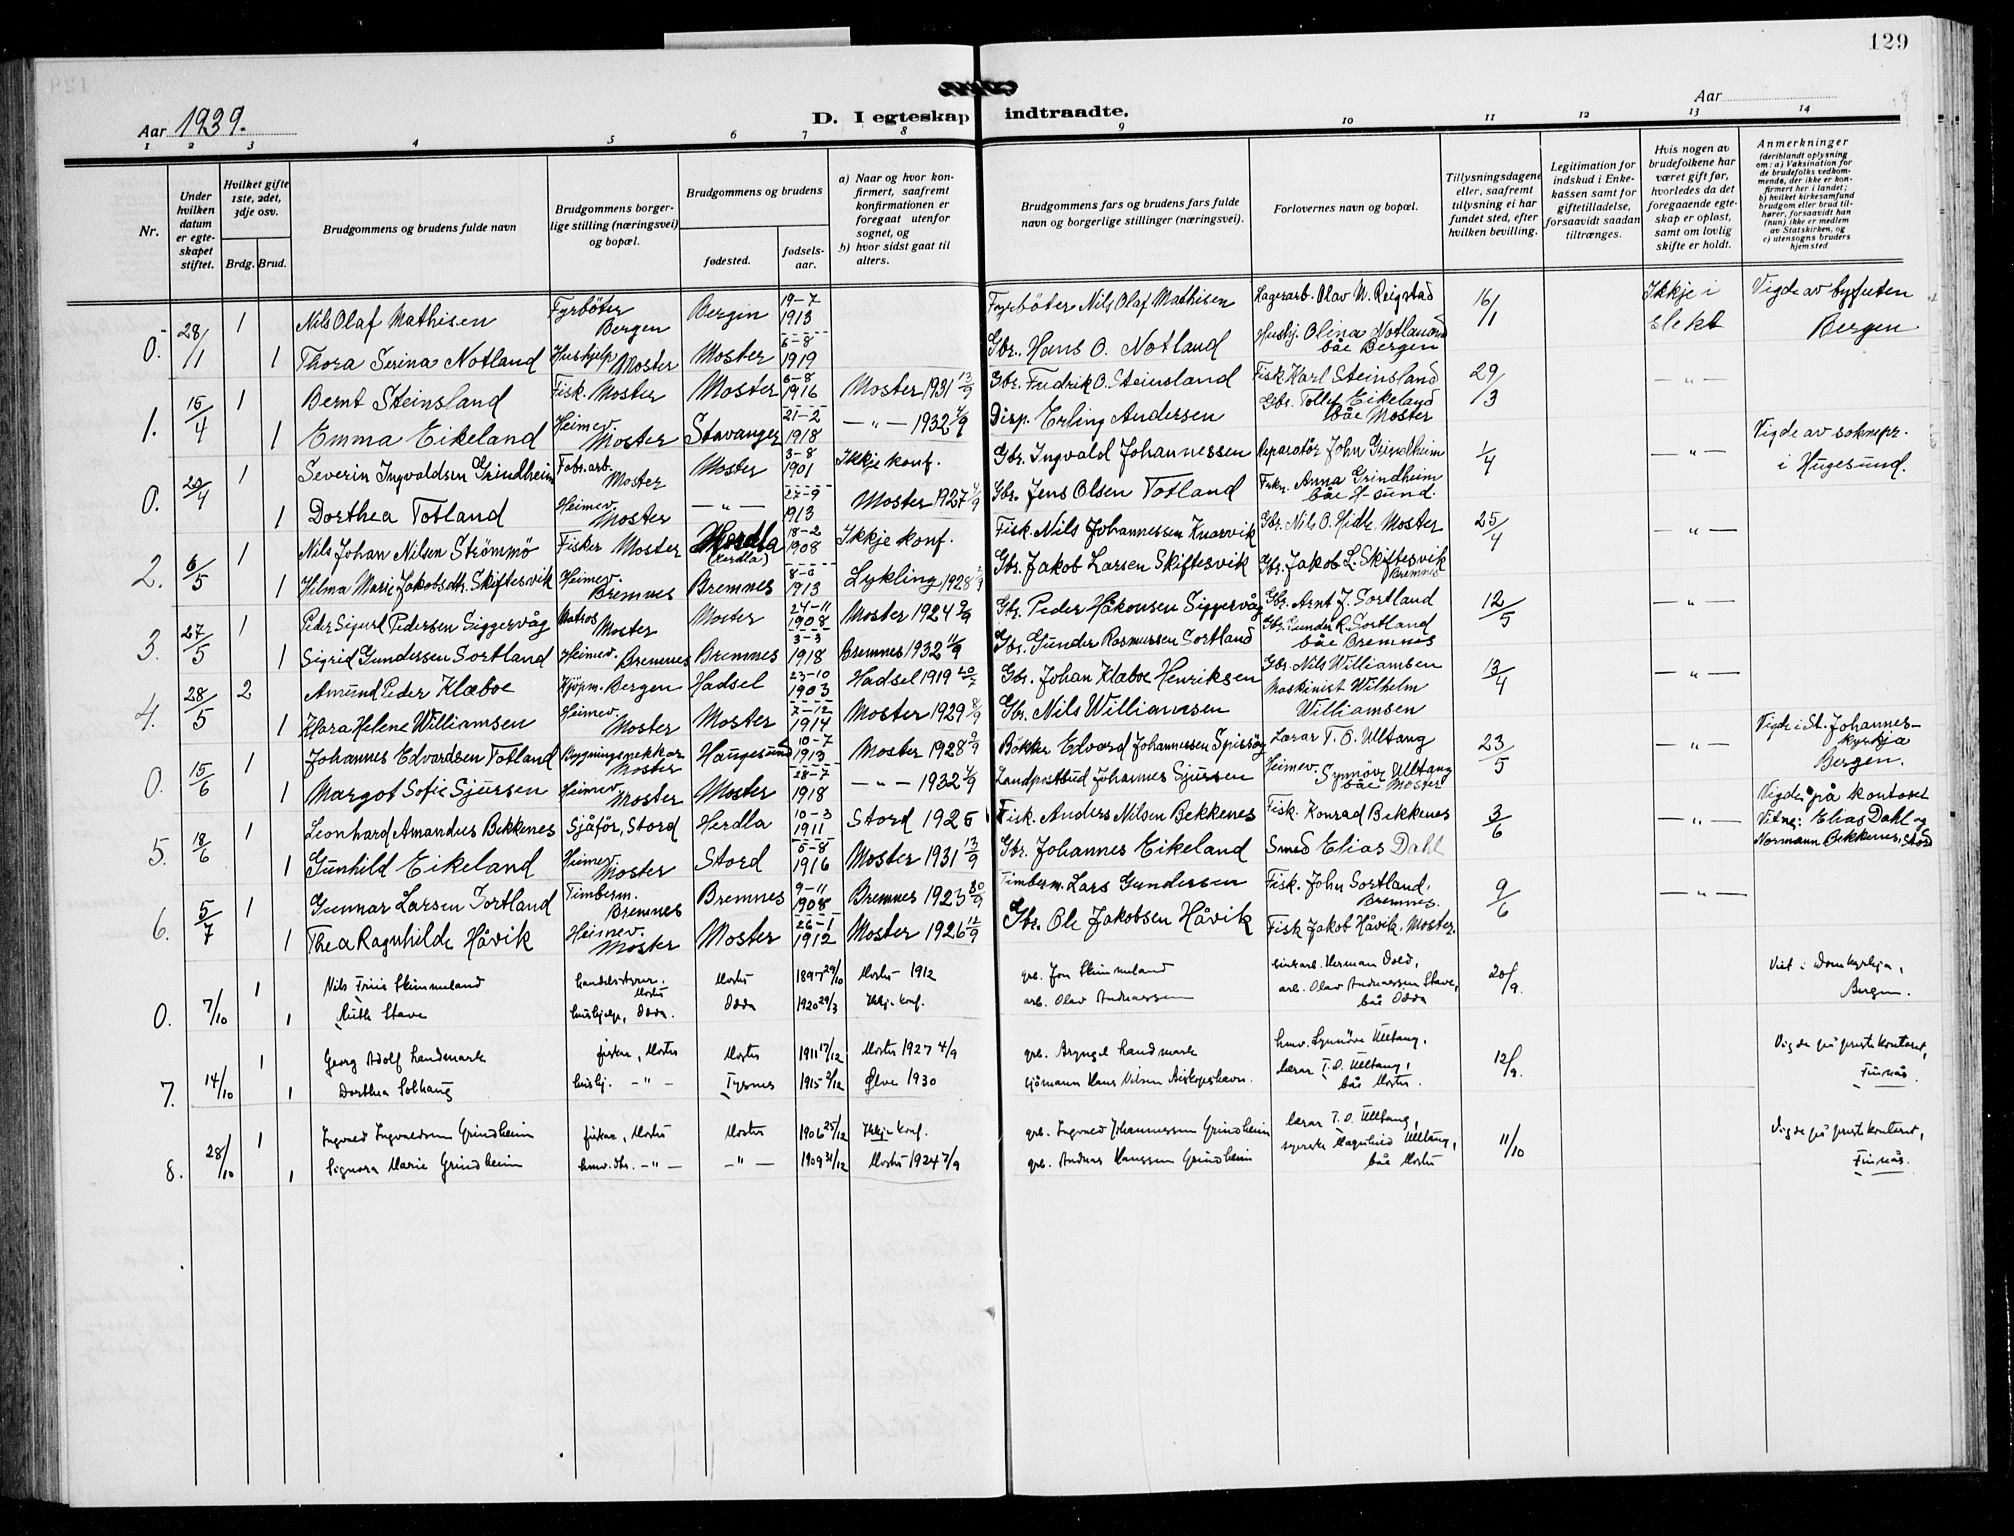 129
Aar 1939.
D. I egteskap indtraadte.
Aar
1 2 3 4 5 6 7 8 9 10 11 12 13 14
Nr.
Under hvilken datum er egteskapet stiftet.
Hvilket gifte 1ste, 2det, 3dje osv.
Brdg. Brud.
Brudgommens og brudens fulde navn
Brudgommens borgerlige stilling (næringsvei) og bopæl.
Brudgommens og brudens
fødested.
fødselsaar.
a) Naar og hvor konfirmert, saafremt konfirmationen er foregaat utenfor sognet, og
b) hvor sidst gaat til alters.
Brudgommens fars og brudens fars fulde navn og borgerlige stillinger (næringsvei).
Forlovernes navn og bopæl.
Tillysningsdagene eller, saafremt tillysning ei har fundet sted, efter hvilken bevilling.
Legitimation for indskud i Enkekassen samt for giftetilladelse, forsaavidt saadan tiltrænges.
Hvis nogen av brudefolkene har været gift før, hvorledes da det foregaaende egteskap er opløst, samt om lovlig skifte er holdt.
Anmerkninger (deriblandt oplysning om: a) Vaksination for de brudefolks vedkommende, der ikke er konfirmert her i landet; b) hvilket kirkesamfund brudgom eller brud tilhører, forsaavidt han (hun) ikke er medlem av Statskirken, og c) utensogns bruders hjemsted
0. 28/1 1 Nils Olaf Mathisen Fyrbøter Bergen Bergin 19-7 1913 Fyrbøter Nils Olaf Mathisen Lagerarb. Olav N. Reigstad 16/1 Ikkje i slekt Vigde av byfuten Bergen
1 Thora Serina Notland Hushjelp Moster Moster 6-8 1919 Gbr. Hans O. Notland Hushj. Olina Notland båe Bergen
1. 15/4 1 Bernt Steinsland Fisk. Moster Moster 6-8 1916 Moster 1931 13/9 Gbr. Fredrik O. Steinsland Fisk. Karl Steinsland 29/3 -"-
1 Emma Eikeland Heimev. Moster Stavanger 21-2 1918 -"- 1932 4/9 Disp. Erling Andersen Gbr. Tollef Eikeland båe Moster
0. 29/4 1 Severin Ingvaldsen Grindheim Fabr.arb. Moster Moster 3-8 1901 Ikkje konf. Gbr. Ingvald Johannessen Reparatør John Grindheim 1/4 -"- Vigde av soknepr. i Hugesund.
1 Dorthea Totland Heimev. Moster -"- 27-9 1913 Moster 1927 4/9 Gbr. Jens Olsen Totland Frkn. Anna Grindheim båe H-sund.
2. 6/5 1 Nils Johan Nilsen Strømmø Fisker Moster Herdla (Herdla) 18-2 1908 Ikkje konf. Fisk. Nils Johannessen Knarvik Gbr. Nils O. Hidle, Moster 25/4 "-
1 Hilma Marie Jakobsdtr. Skiftesvik Heimev. Bremnes Bremnes 8-6 1913 Lykling 1928 Gbr. Jakob Larsen Skiftesvik Gbr. Jakob L. Skiftesvik Bremnes
3. 27/5 1 Peder Sigurt Pedersen Siggervåg Matros Moster Moster 24-11 1908 Moster 1924 Gbr. Peder Håkonsen Siggervåg Gbr. Arnt J. Sortland 12/5 -"-
1 Sigrid Gundersen Sortland Heimev. Bremnes Bremnes 3-3 1918 Bremnes 1932 11/9 Gbr. Gunder Rasmussen Sortland Gbr. Gunder R. Sortland båe Bremnes
4. 28/5 2 Amund Peder Klæboe Kjøpm. Bergen Hadsel 23-10 1903 Hadsel 1919 20/7 Gbr. Johan Klæboe Henriksen Gbr. Nils Williamsen 13/4 -"-
1 Klara Helene Williamsen Heimev. Moster Moster 7-12 1914 Moster 1929 8/9 Gbr. Nils Williamsen Maskinist Wilhelm Williamsen
0. 15/6 1 Johannes Edvardsen Totland Bygningsnekkar Moster Haugesund 10-7 1913 Moster 1928 9/9 Bøkker Edvard Johannessen Spissøy Lærar T. O. Ulltang 23/5 -"- Vigde i St. Johanneskyrkja Bergen.
1 Margot Sofie Sjursen Heimev. Moster Moster 28-7 1918 -"- 1932 4/9 Landpostbud Johannes Sjursen Heimev. Synnøve Ulltang båe Moster
5. 18/6 1 Leonhard Amandus Bekkenes Sjåfør, Stord Herdla 10-3 1911 Stord 1925 Fisk. Anders Nilsen Bekkenes Fisk. Konrad Bekkenes 3/6 -"- Vigde på kontoret Vitne: Elias Dahl og Normann Bekkenes, Stord
1 Gunhild Eikeland Heimev. Moster Stord 5-8 1916 Moster 1931 13/9 Gbr. Johannes Eikeland Smed Elias Dahl
6. 5/7 1 Gunnar Larsen Sortland Timberm. Bremnes Bremnes 9-11 1908 Bremnes 1923 30/9 Timberm. Lars Gundersen Fisk. John Sortland, Bremnes. 9/6 -"-
1 Thea Ragnhilde Håvik Heimev. Moster Moster 26-1 1912 Moster 1926 12/9 Gbr. Ole Jakobsen Håvik Fisk Jakob Håvik, Moster.
0. 7/10 1 Nils Friis Skimmeland handelsstyrar. Moster Moster 1897 29/10 Moster 1912 grb. Jon Skimmeland Herman Dold, 20/9. Viet i Domkyrkja, Bergen.
1 Ruth Stave hushjelp, Odda. Odda 1920 29/3 Ikkje konf. arb. Olav Andreassen arb. Olav Andreassen Stave, båe Odda
7. 14/10 1 Georg Adolf Landmark fiskar, Moster Moster 1911 17/12 Moster 1927 4/9 grb. Landmark hmv. Synnøve Ulltang, 12/9. Vigde på prestekontoret, Finnås.
1 Dorthea Solhaug hushj. -"- Tysnes 1915 2/12 Ølve 1930 sjømann Hans Nilsen Biskopshavn. lærar T. O. Ulltang, båe Moster.
8. 28/10 1 Ingvald Ingvaldsen Grindheim fiskar, Moster Moster 1906 25/12 Ikkje konf. grb. Ingvald Johannessen Grindheim lærar T. O. Ulltang, 11/10 Vigde på prestekontoret, Finnås.
1 Signora Marie Grindheim hmv. -"- -"- 1909 31/12 Moster 1924 7/9 grb. Andreas Hanssen Grindheim Magnhild Ulltang, båe Moster